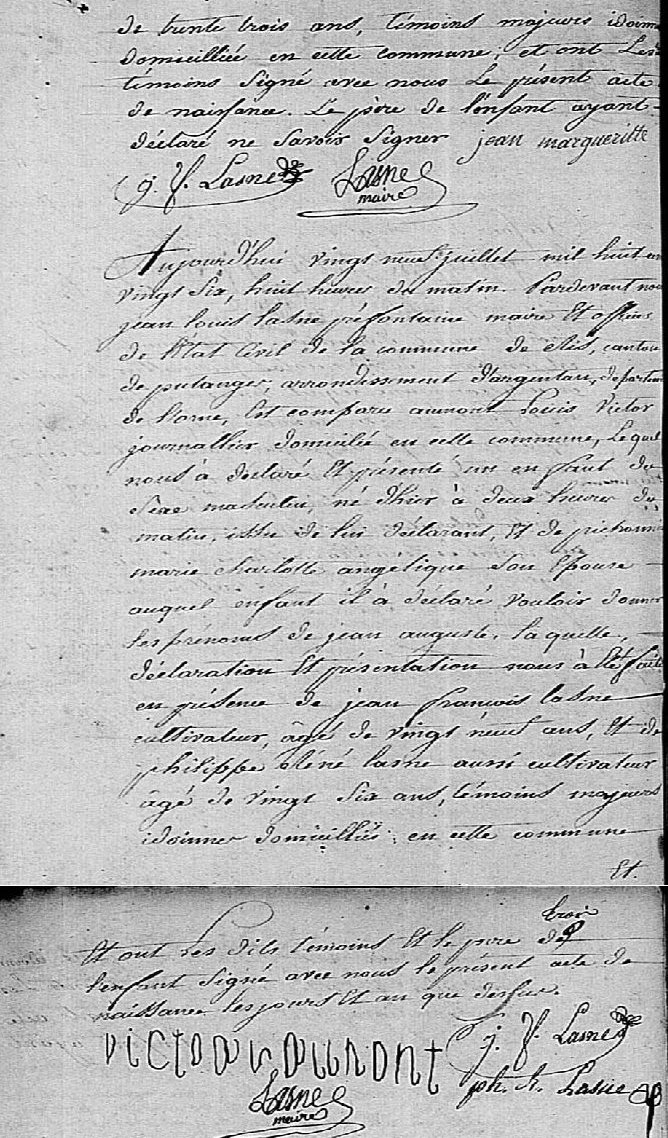 de trente trois ans, témoins majeurs idoine
domiciliée en cette commune, et ont Les
témoins Signé avec nous Le présent acte
de naissance. Le père de l'enfant ayant
déclaré ne Savoir Signer jean margueritte
j. f. Lasne Lasne
maire
Aujourd'hui vingt neuf juillet mil huit cen
vingt Six, huit heures du matin. Pardevant nou
jean Louis Lasne préfontaine maire Et officier
de l'Etat Civil de la commune de cantou
de putanges, arrondissement d'argentan, departem
de L'orne, Est comparu aumont Louis Victor
journallier domicilié en cette commune, Lequel
nous à déclaré Et présenté un enfant du
Sexe masculin, né d'hier à deux heures du
matin, issu de lui déclarant, Et de
marie charlotte angélique Son Epouse
auquel enfant il à déclaré vouloir donner
les prénoms de jean auguste. Laquelle,
déclaration Et présentation nous à Eté faite
en présence de jean françois lasne
cultivateur, âgé de vingt neuf ans, Et de
philippe Réné lasne aussi cultivateur
âgé de vingt Six ans, témoins majeurs
idoinnes domiciliés en cette commune
Et.
Et ont Les dits témoins Et le père de
l'enfant Signé avec nous le présent acte de
naissance les jours Et an que dessus.
j. f. Lasne
ph. R. Lasne
Lasne
maire